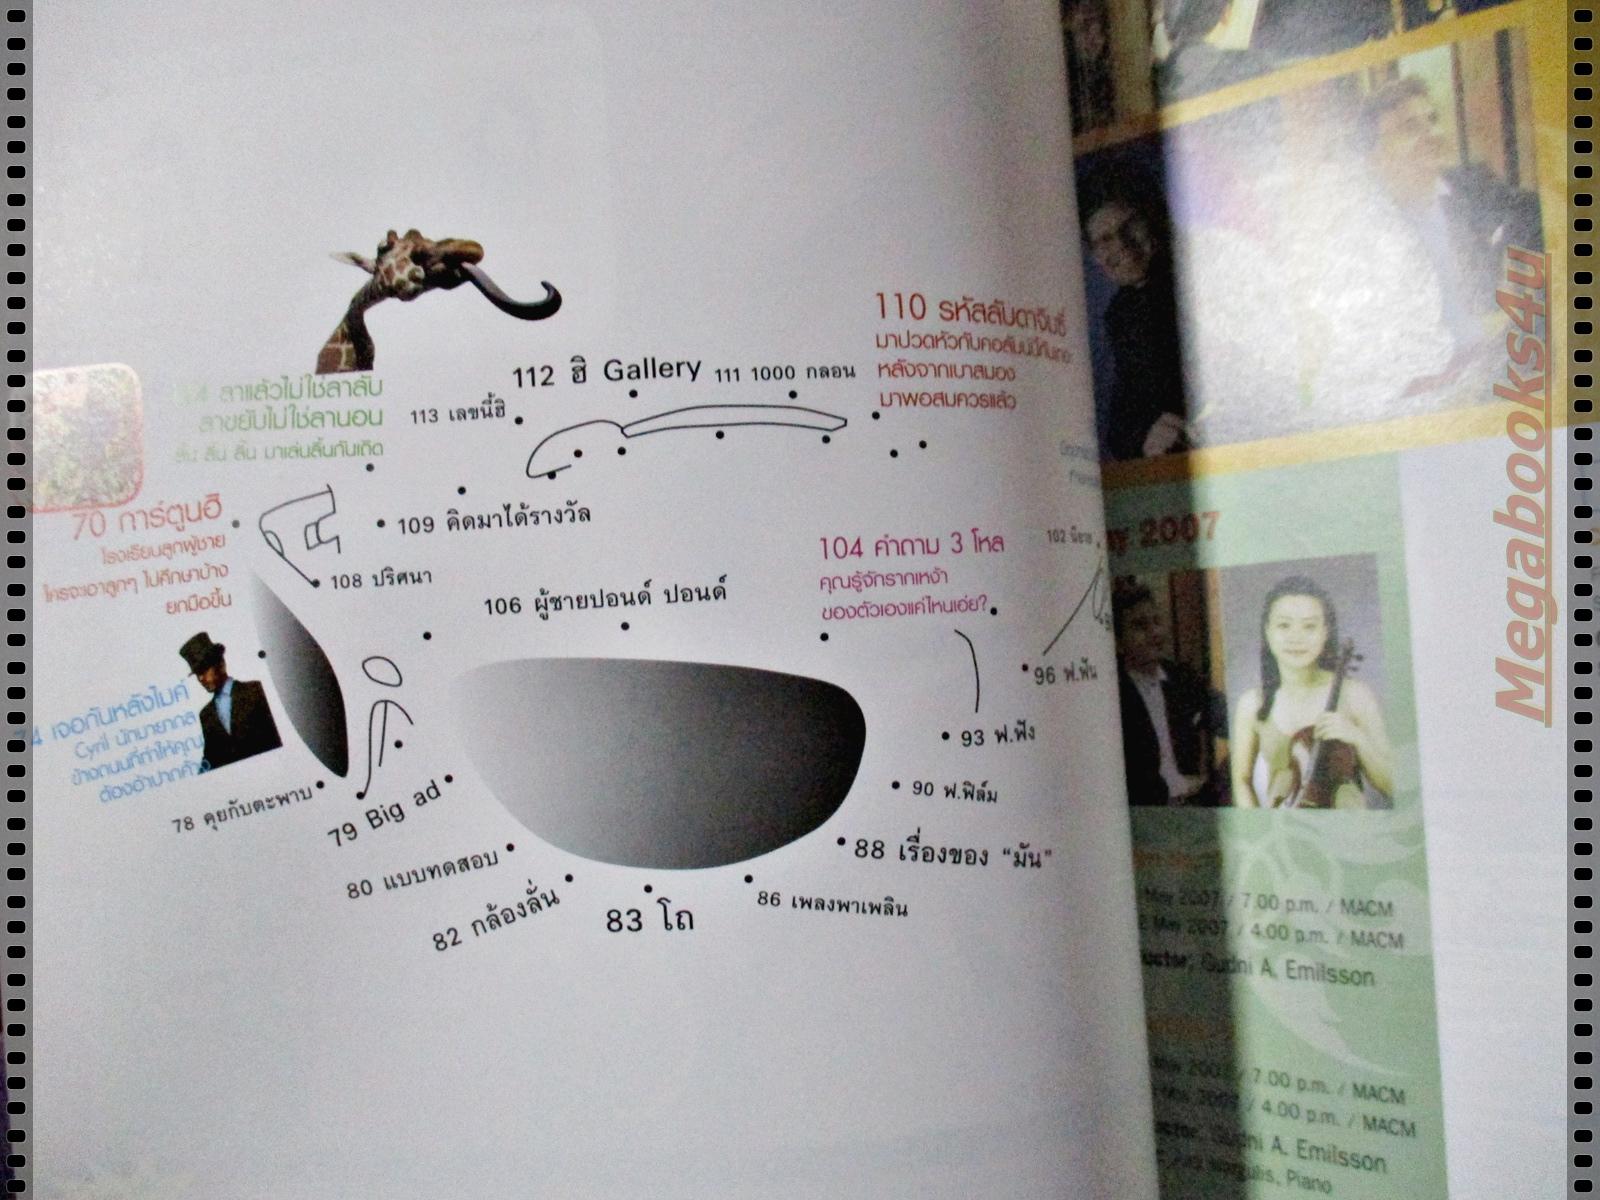 112 ฮิ Gallery
111 1000 กลอน
113 เลขนี้ฮิ
110 รหัสลับดาวินชี่
มาปวดหัวกับคอลัมน์นี้กันเถอะ
หลังจากเบาสมอง
มาพอสมควรแล้ว
ลาแล้วไม่ใช่ลาลับ
ลาขยับไม่ใช่ลานอน
ลิ้น ลิ้น ลิ้น มาเล่นลิ้นกันเถิด
70 การ์ตูนฮิ
โรงเรียนลูกผู้ชาย
ใครจะเอาลูกๆ ไปศึกษาบ้าง
ยกมือขึ้น
109 คิดมาได้รางวัล
108 ปริศนา
106 ผู้ชายปอนด์ ปอนด์
104 คำถาม 3 โหล
คุณรู้จักรากเหง้า
ของตัวเองแค่ไหนเอ่ย?
102 นิยาย
96 ฟ.ฟัน
93 ฟ.ฟัง
90 ฟ.ฟิล์ม
88 เรื่องของ "มัน"
86 เพลงพาเพลิน
83 โถ
82 กล้องลั่น
80 แบบทดสอบ
79 Big ad
78 คุยกับตะพาบ
74 เจอกันหลังไมค์
Cyril นักมายากล
ข้างถนนที่ทำให้คุณ
ต้องอ้าปากค้าง
2007
May 2007 / 7.00 p.m. / MACM
May 2007 / 4.00 p.m. / MACM
Gudni A. Emilsson
2007 / 7.00 p.m. / MACM
/ 4.00 p.m. / MACM
Gudni A. Emilsson
Piano
Megabooks4u